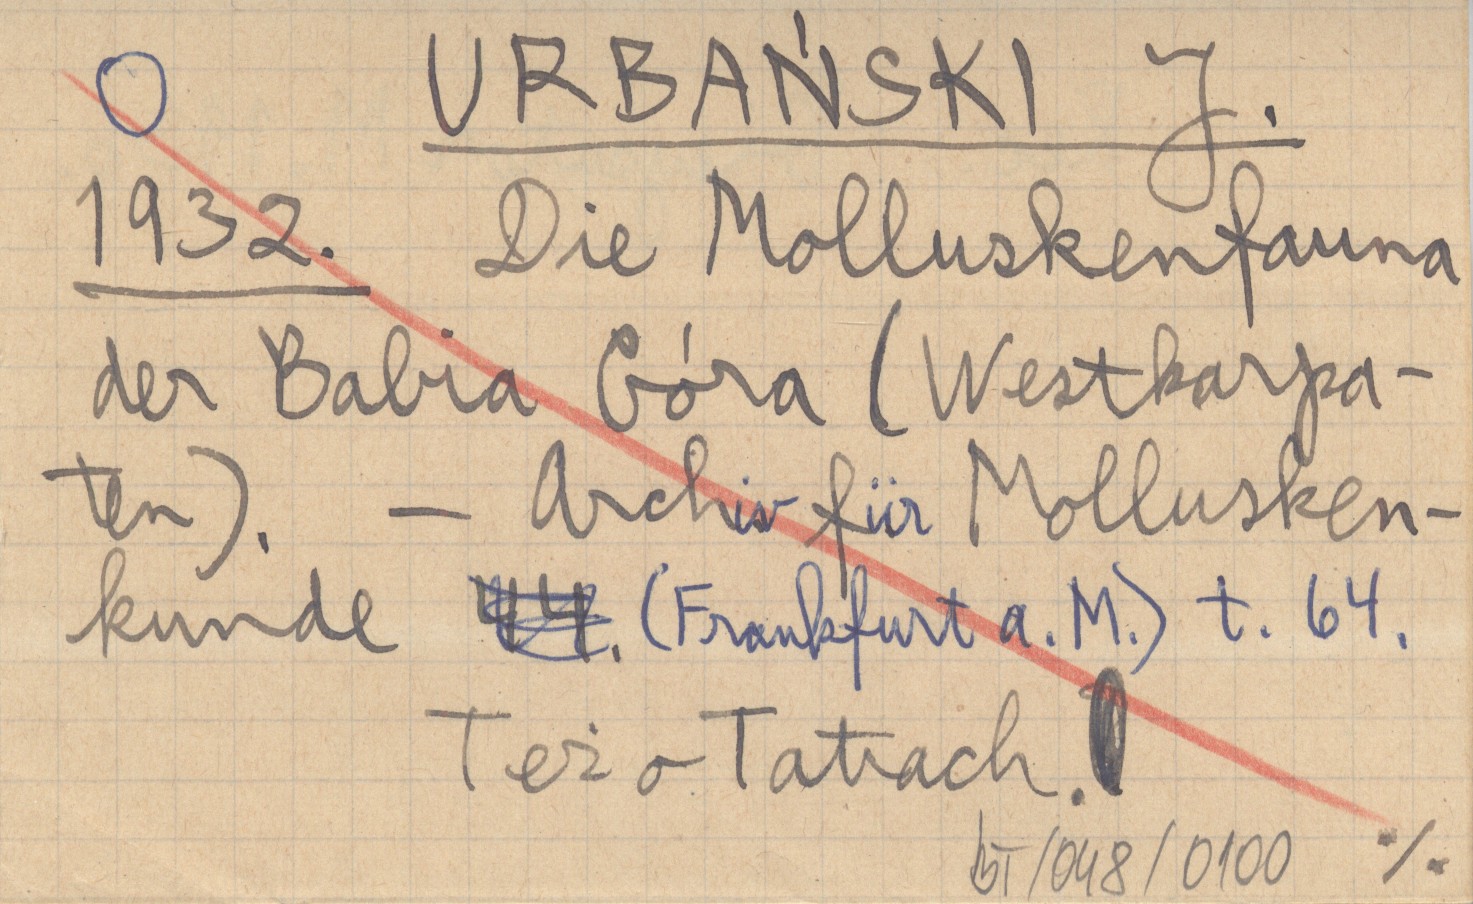 URBAŃSKI J.
1932. Die Molluskenfauna
der Babia Góra (Westkarpa-
ten). — Archiv für Mollusken-
kunde (Frankfurt a. M.) t. 64.
Też o Tatrach.
BT/048/0100 ·/.